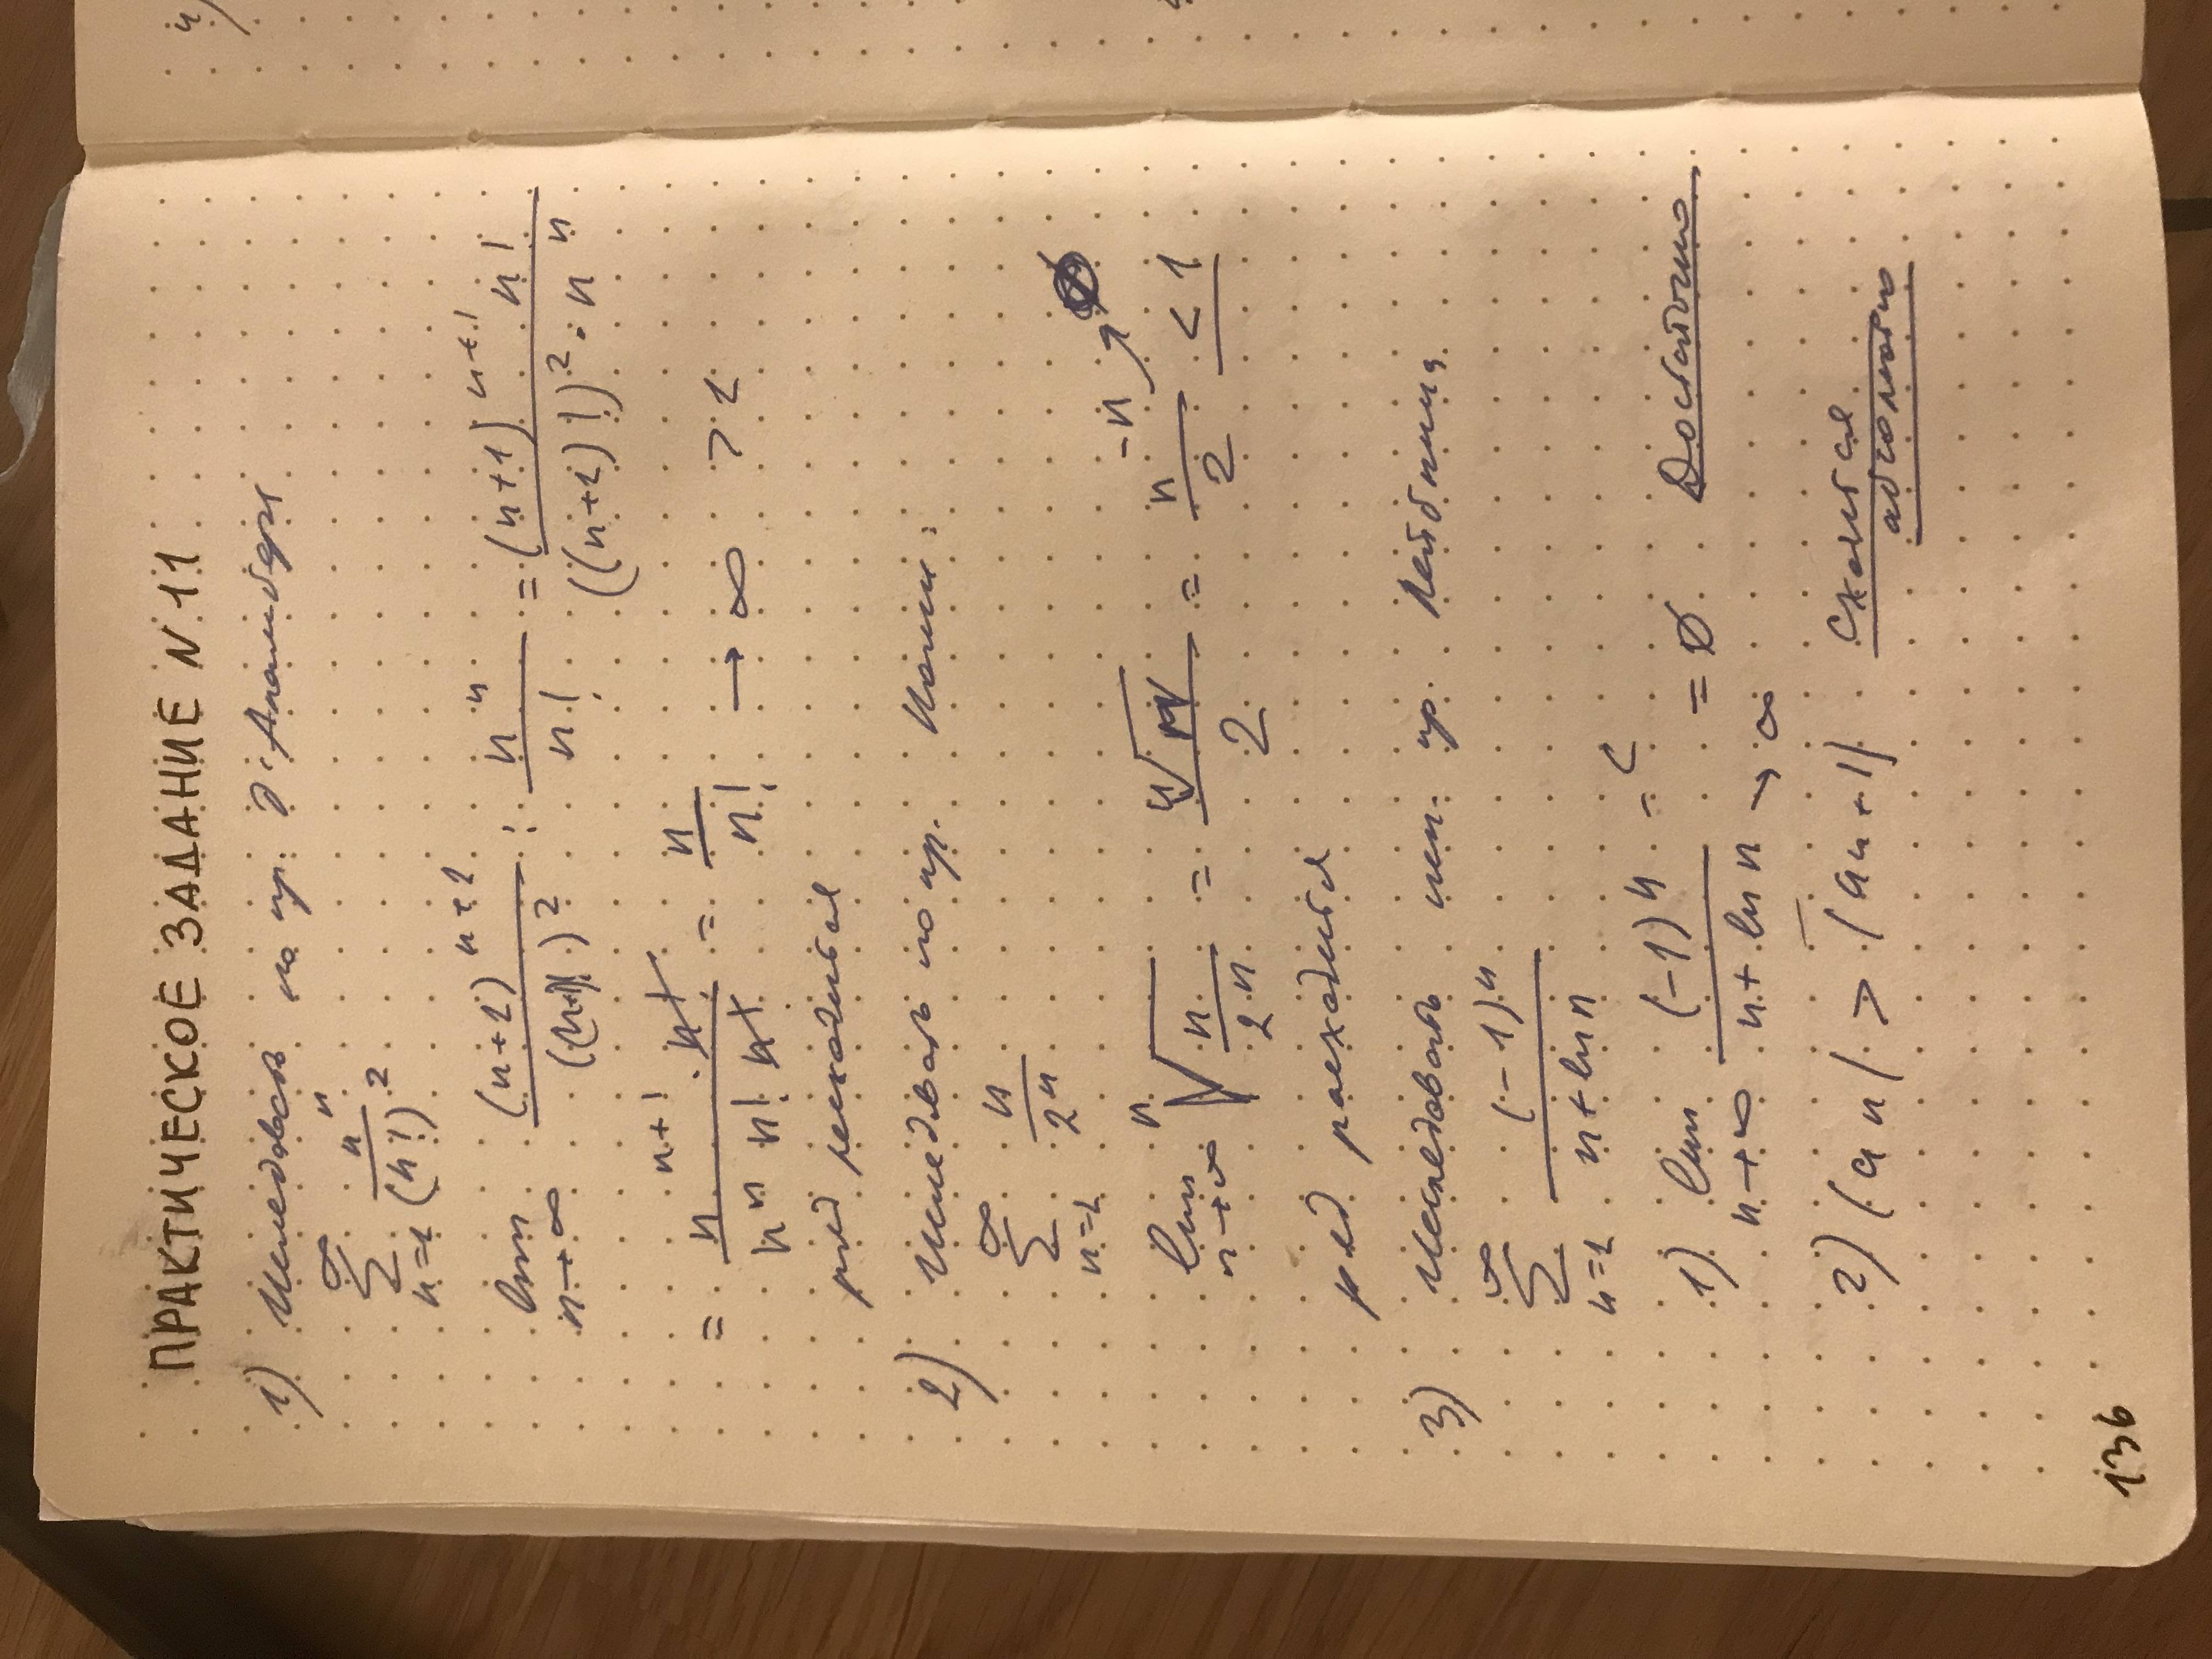 ПРАКТИЧЕСКОЕ ЗАДАНИЕ N 11
1) Иследовать по пр. Д'Аламбера
∞ Σ n=1 n^n / (n!)^2
lim n→∞ (n+1)^(n+1) / ((n+1)!)^2 : n^n / n! = (n+1)^(n+1) n! / ((n+1)!)^2 · n^n
= n^(n+1) · n! / n^n n! n! = n / n! → ∞ > 1
ряд расходится
2) Иследовать по пр. Коши:
∞ Σ n=1 n / 2^n
lim n→∞ n√(n / 2^n) = n√n / 2 = n^(-n) / 2 < 1
ряд расходится
3) Исследовать исп. пр. Лейбница
∞ Σ n=1 (-1)^n / n + ln n
1) lim n→∞ (-1)^n = C / n + ln n → ∞ = 0 Достаточно
2) |an| > |an+1| Сходится
абсолютно
136
4)